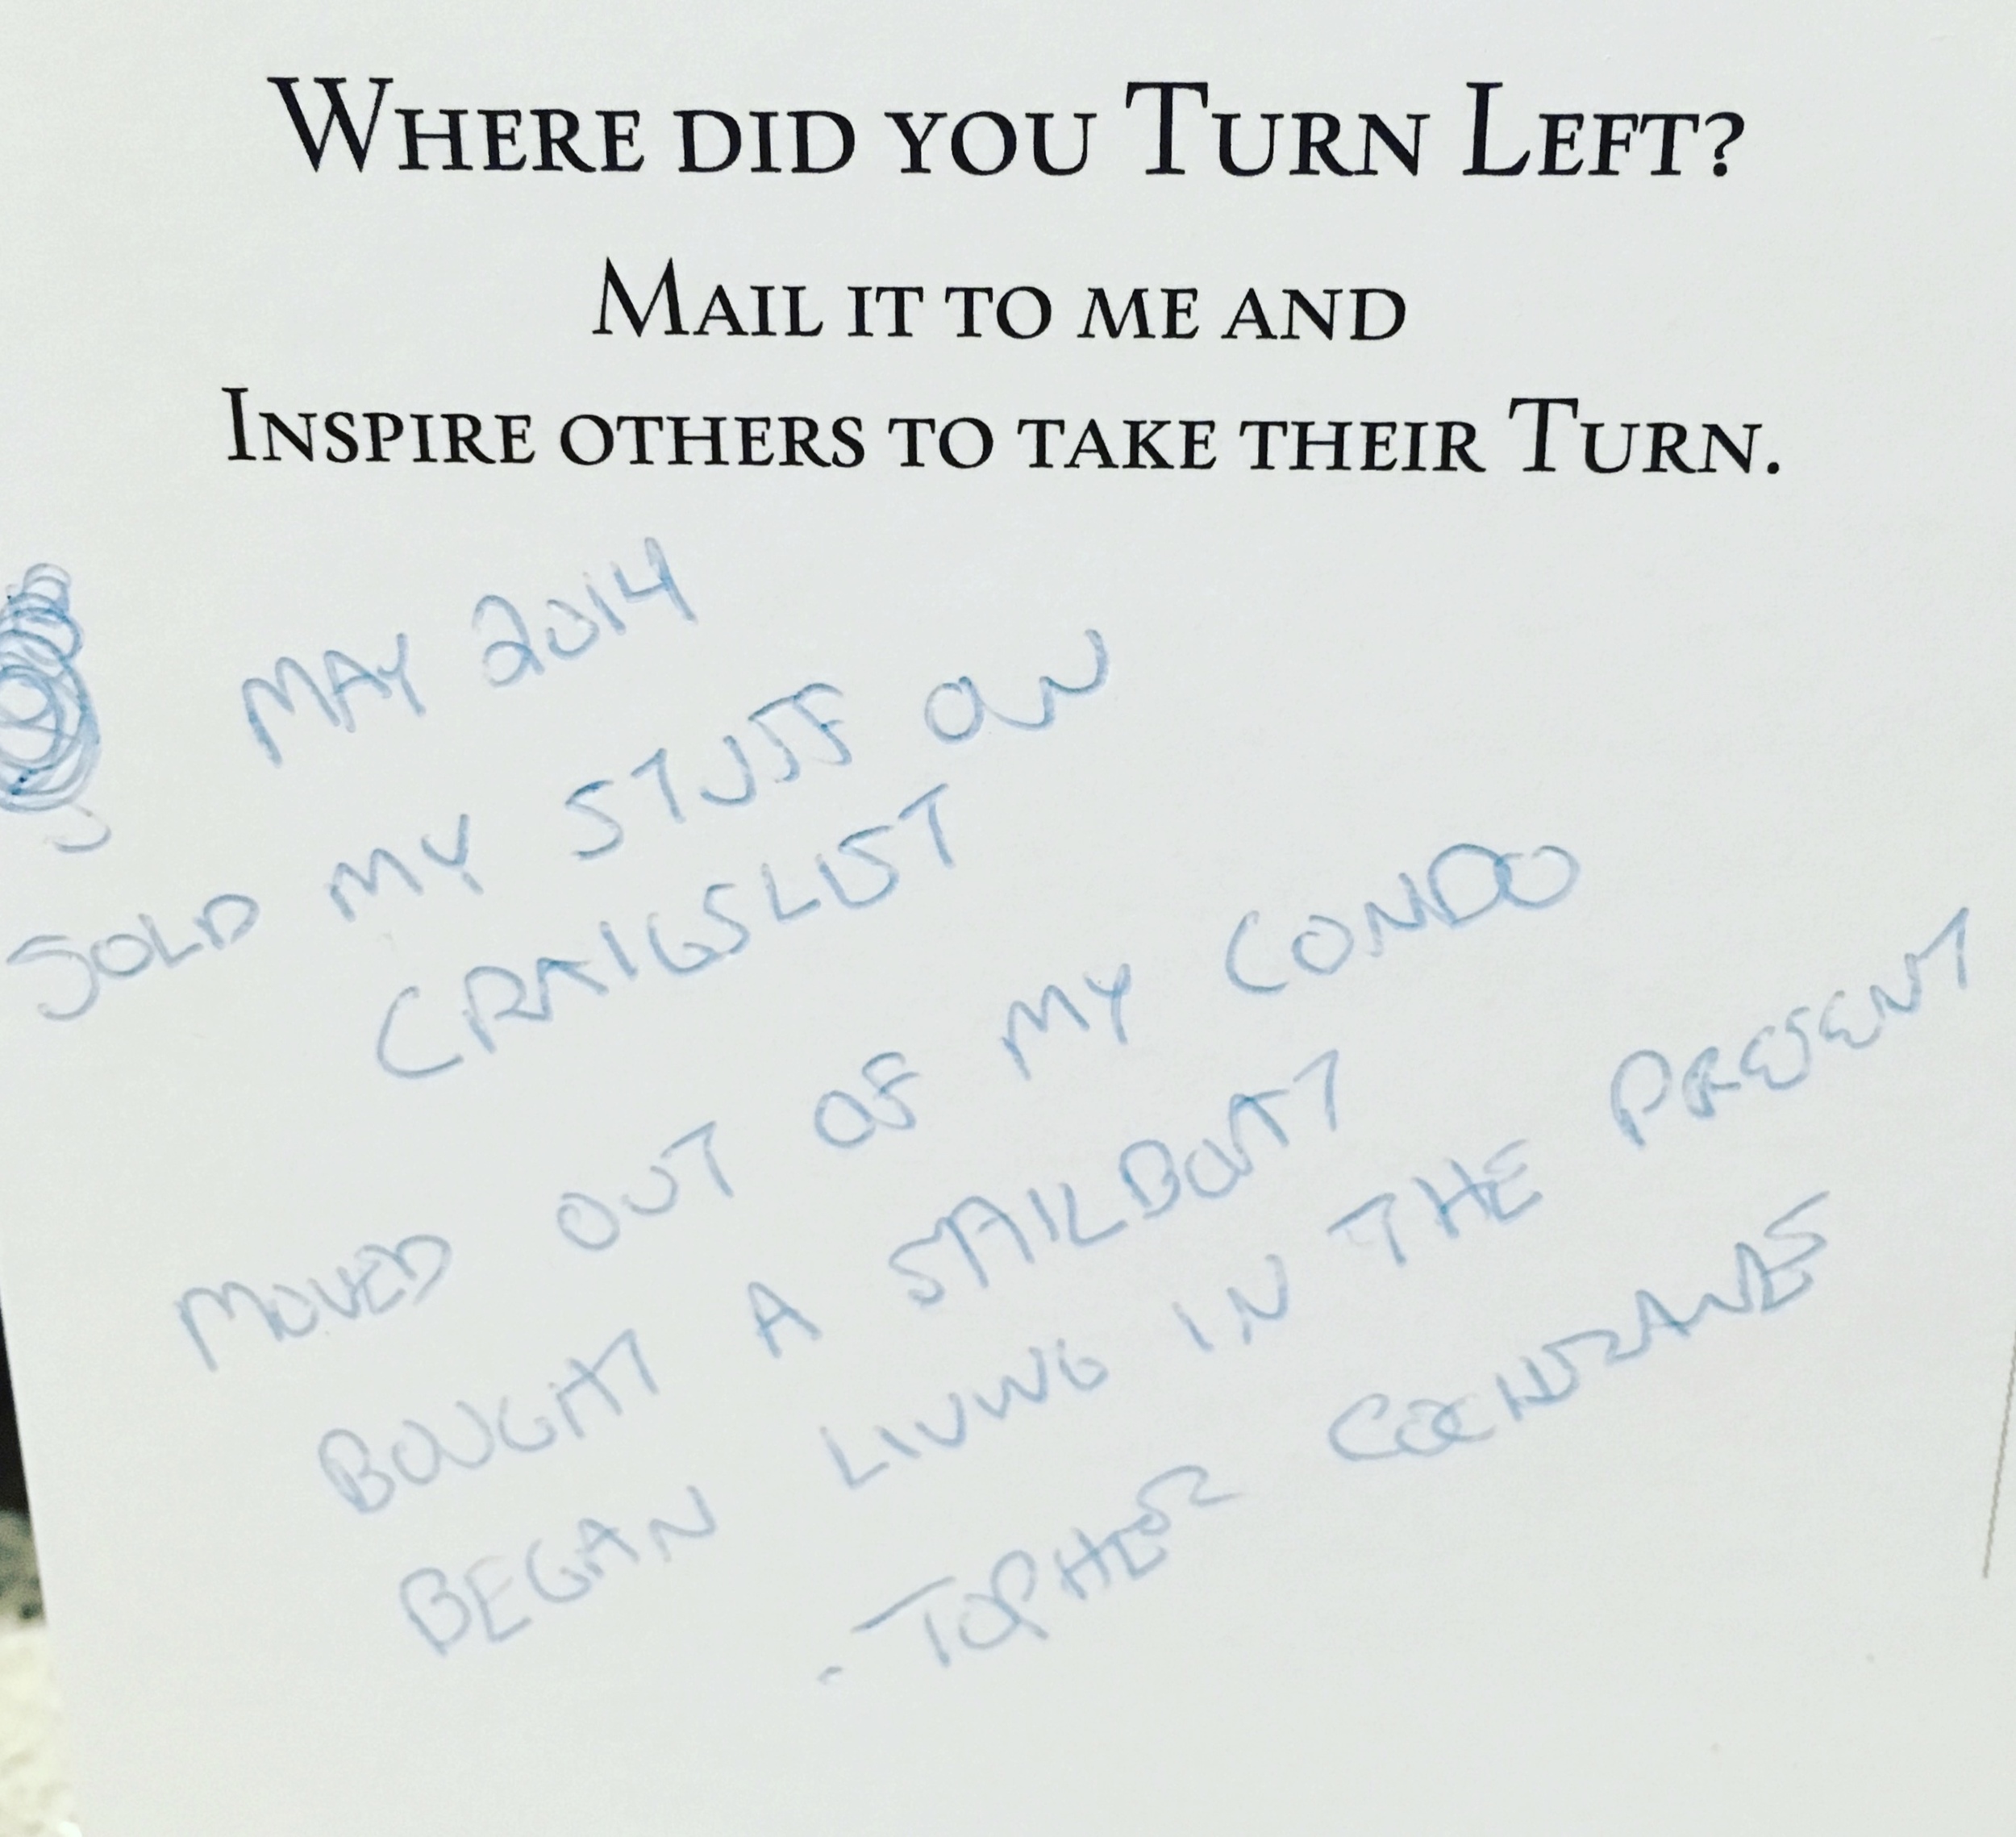 WHERE DID YOU TURN LEFT?
MAIL IT TO ME AND
INSPIRE OTHERS TO TAKE THEIR TURN.
MAY 2014
SOLD MY STUFF ON
CRAIGSLIST
MOVED OUT OF MY CONDO
BOUGHT A SAILBOAT
BEGAN LIVING IN THE PRESENT
- TOPHER